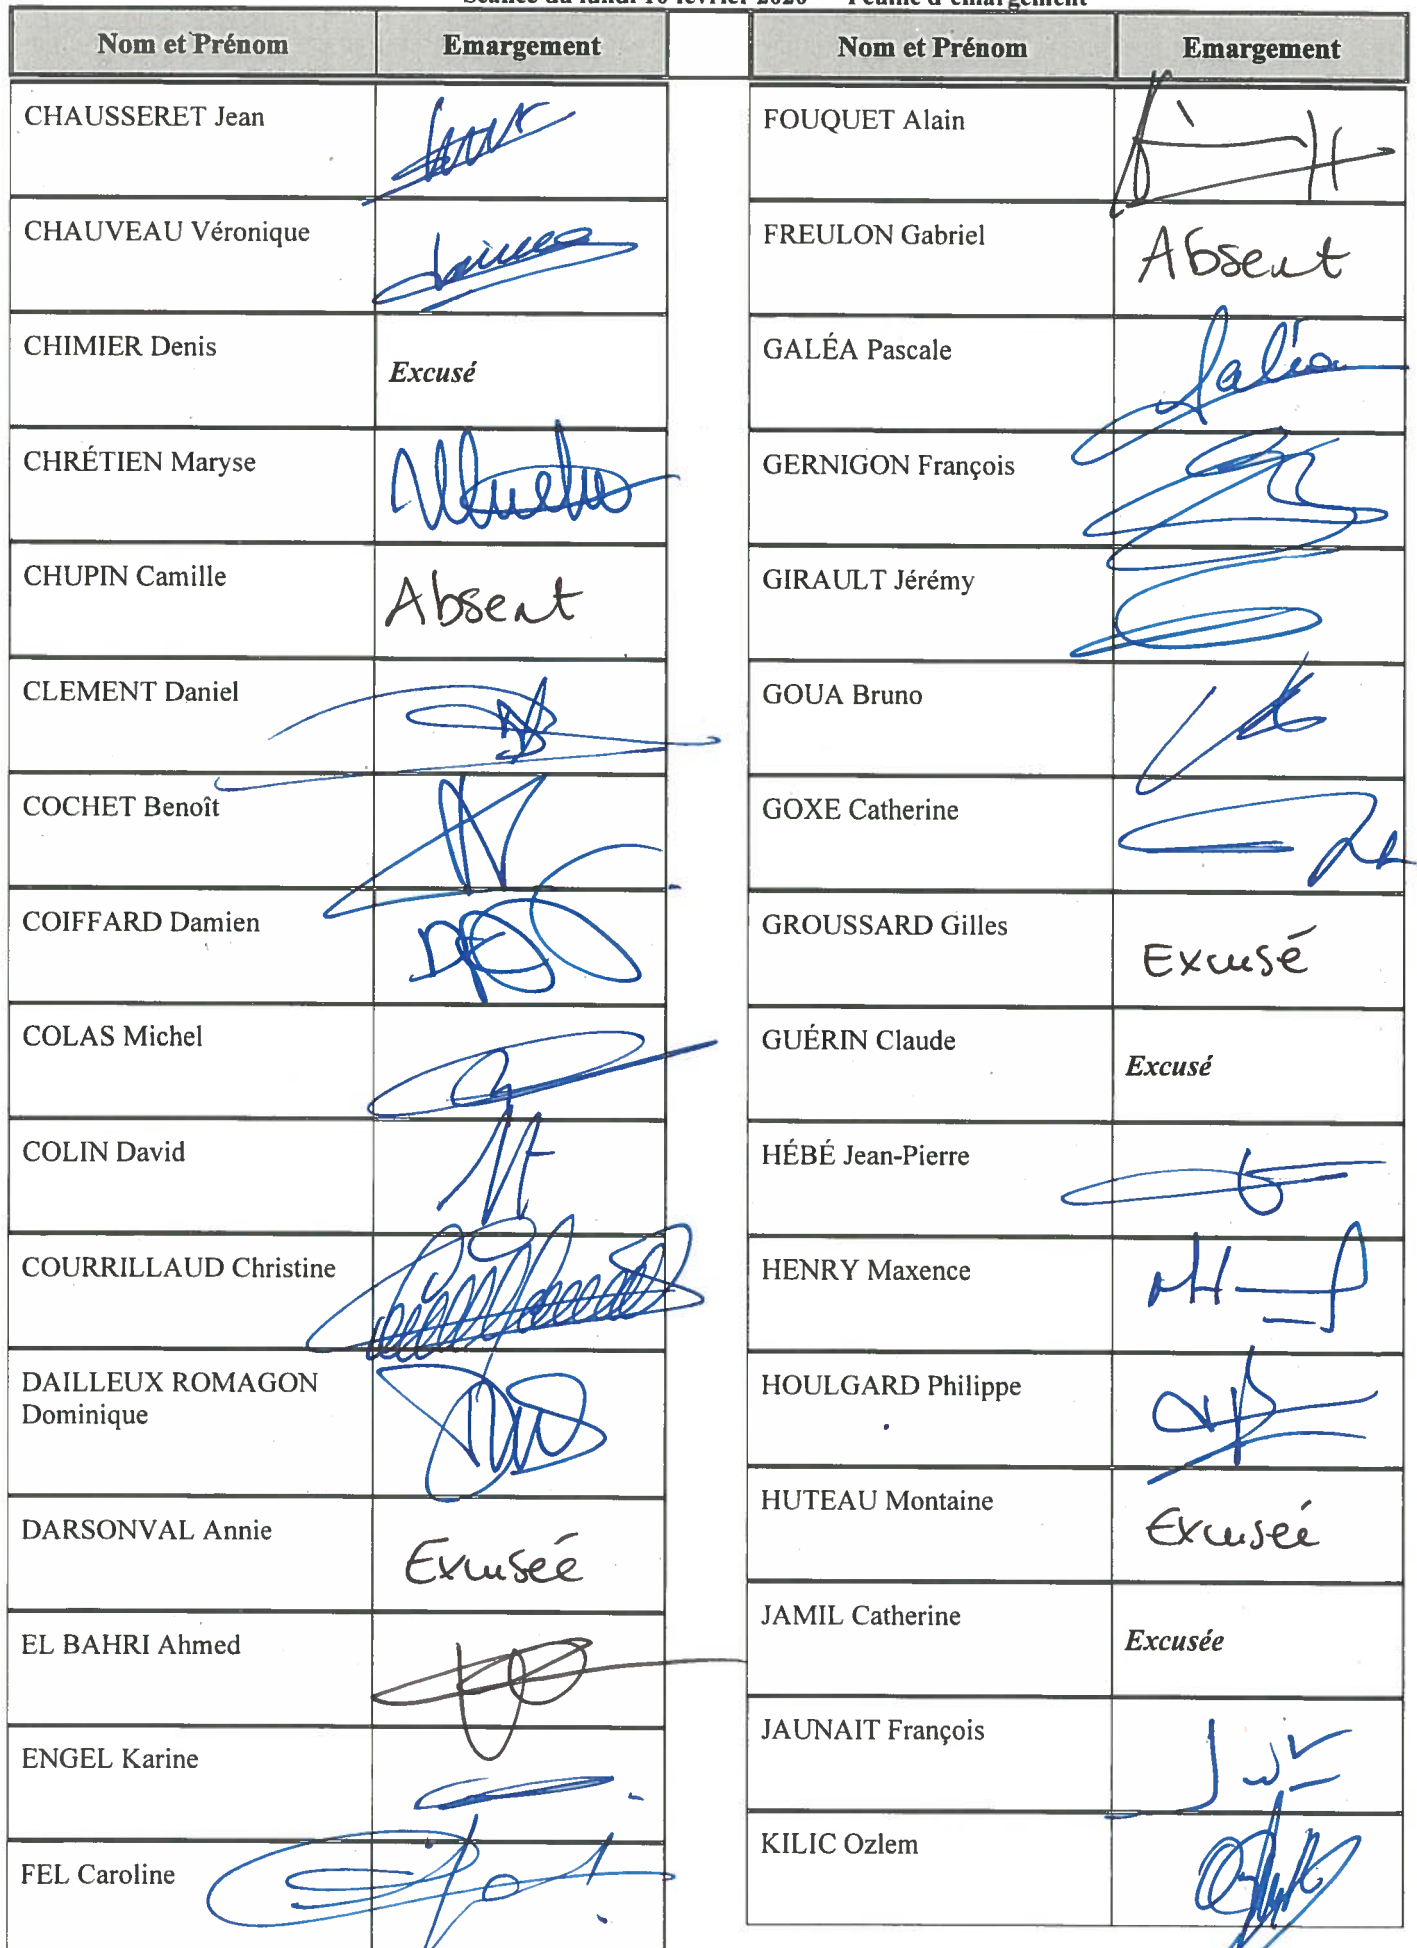 Séance du lundi 10 février 2020 Feuille d'émargement
Nom et Prénom Emargement
CHAUSSERET Jean
CHAUVEAU Véronique
CHIMIER Denis Excusé
CHRÉTIEN Maryse
CHUPIN Camille Absent
CLEMENT Daniel
COCHET Benoît
COIFFARD Damien
COLAS Michel
COLIN David
COURRILLAUD Christine
DAILLEUX ROMAGON
Dominique
DARSONVAL Annie Excusée
EL BAHRI Ahmed
ENGEL Karine
FEL Caroline
Nom et Prénom Emargement
FOUQUET Alain
FREULON Gabriel Absent
GALÉA Pascale Galéa
GERNIGON François
GIRAULT Jérémy
GOUA Bruno
GOXE Catherine
GROUSSARD Gilles Excusé
GUÉRIN Claude Excusé
HÉBÉ Jean-Pierre
HENRY Maxence
HOULGARD Philippe
HUTEAU Montaine Excusée
JAMIL Catherine Excusée
JAUNAIT François
KILIC Ozlem